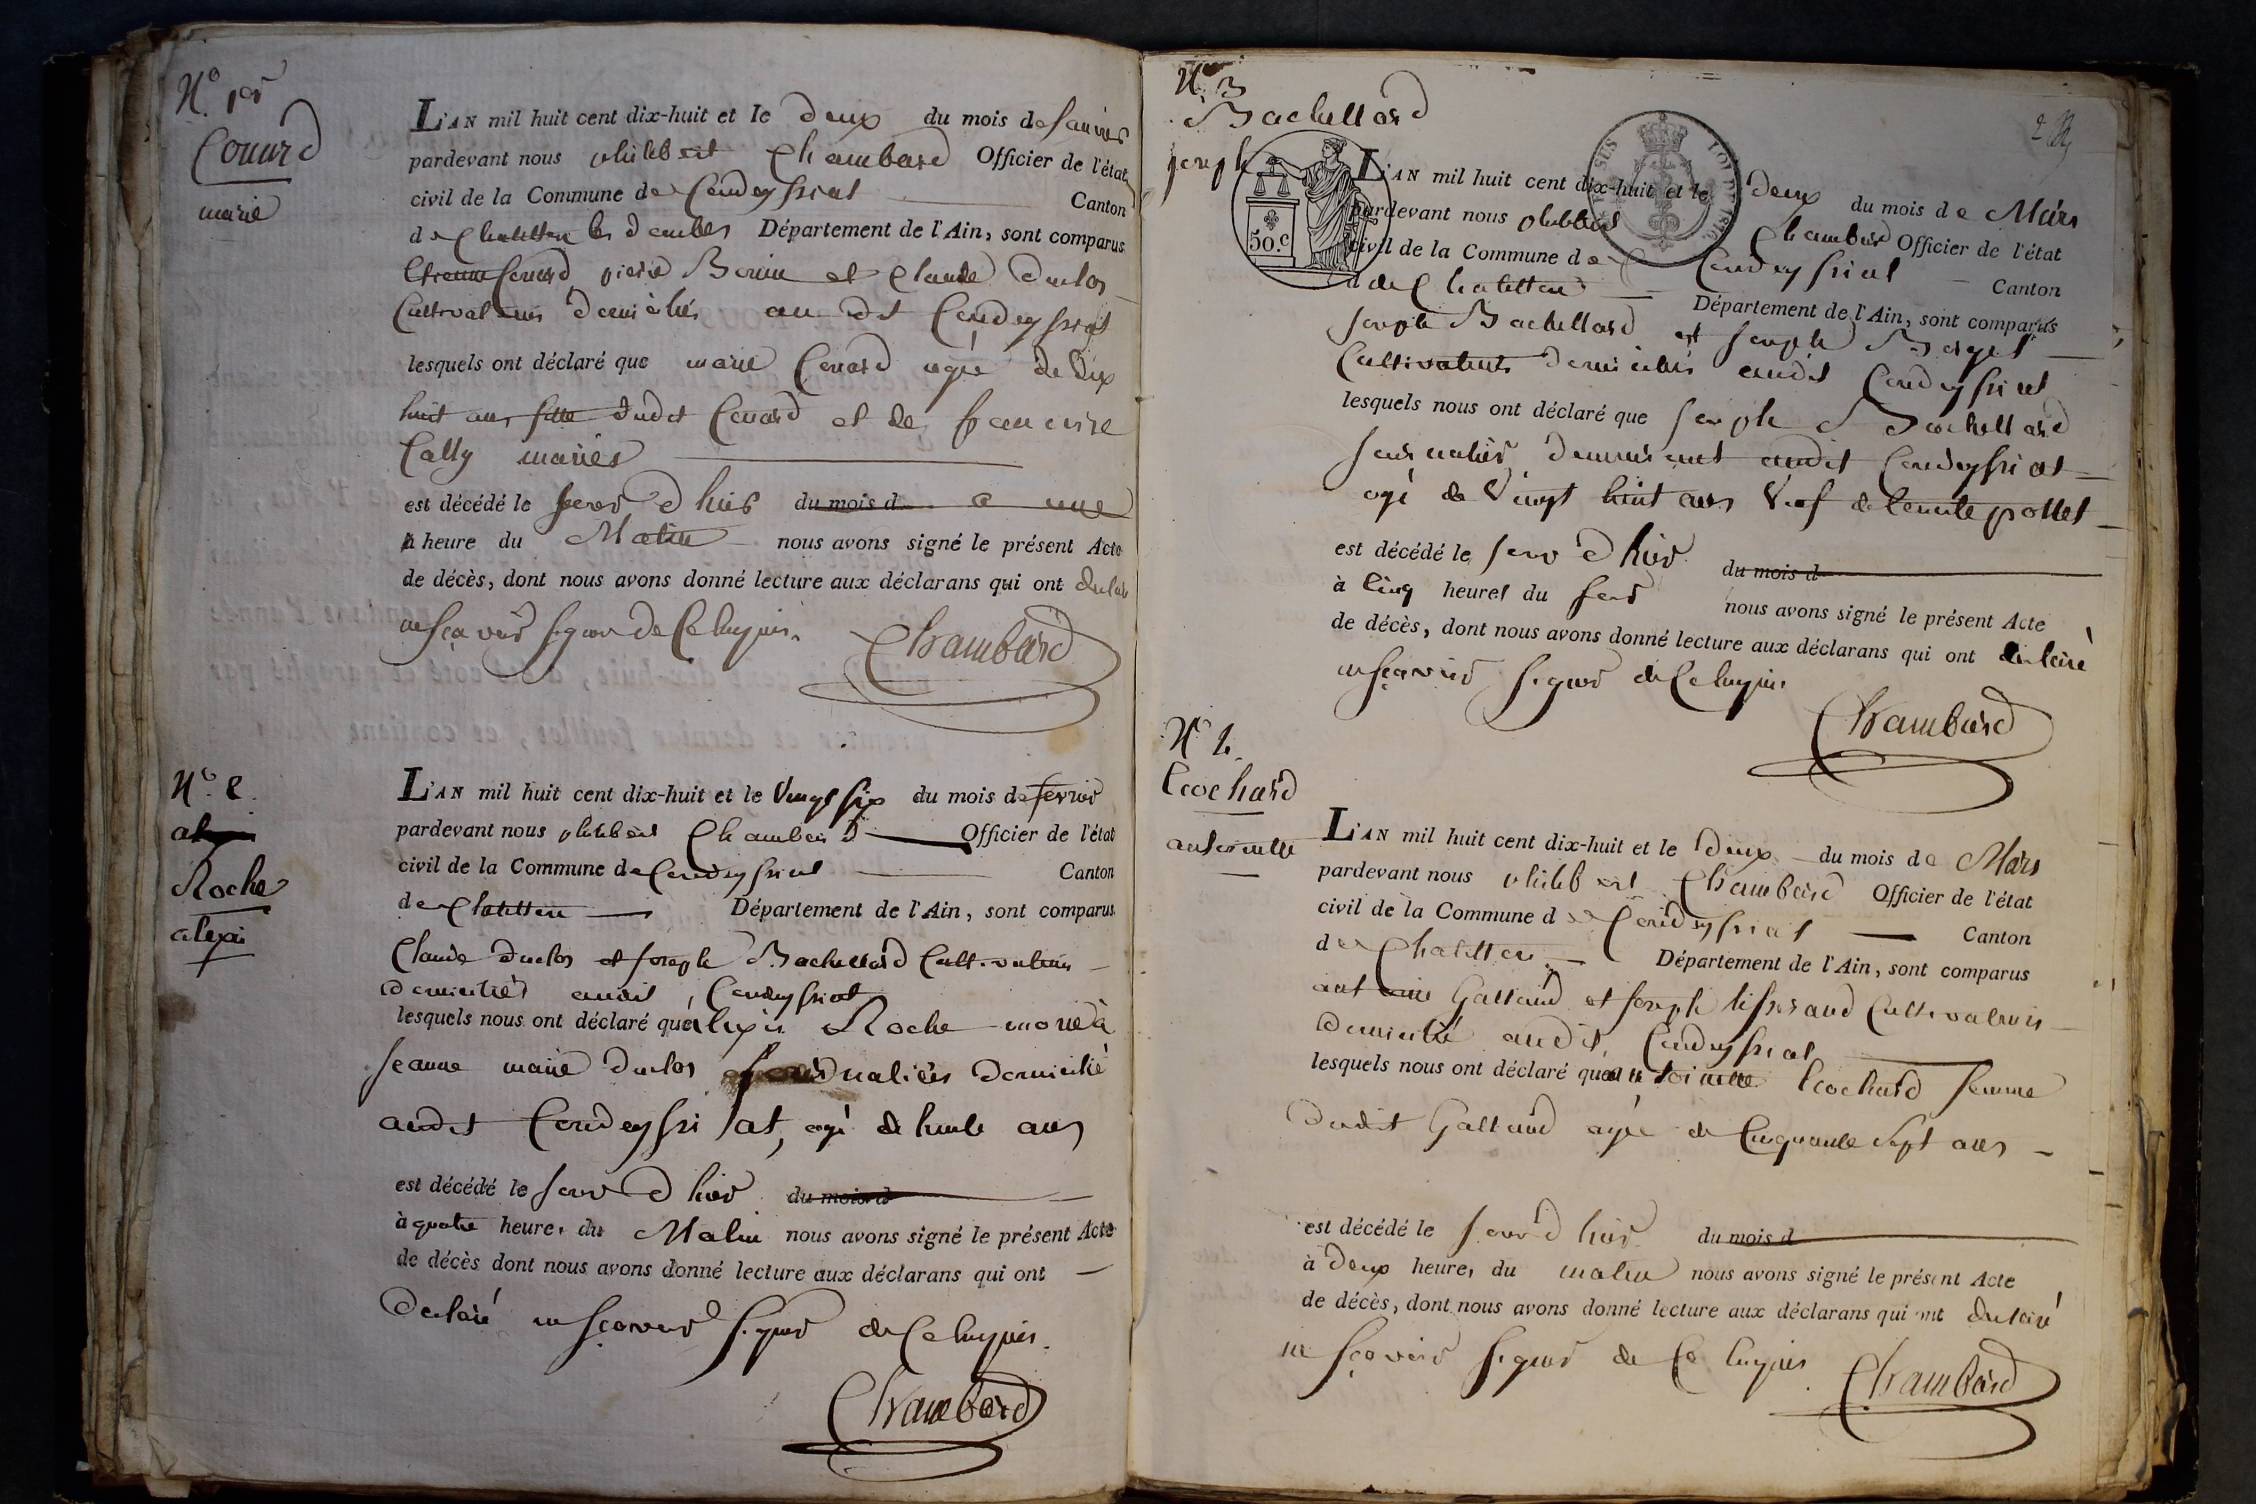 N.º 1er
Conard
marie
L'AN mil huit cent dix-huit et le deux du mois de Janvier
pardevant nous philibert Chambard Officier de l'état
civil de la Commune de Condeyssiat Canton
de Chatillon les dombes Département de l'Ain, sont comparus
Conard, pierre Bonin et Claude Duclos
Cultivateurs domiciliés au dit Condeyssiat
lesquels ont déclaré que marie Conard agée de dix
huit ans fille dudit Conard et de francoise
mariés
est décédé le jour d hier du mois d a une
h heure du Matin nous avons signé le présent Acte
de décès, dont nous avons donné lecture aux déclarans qui ont
ne sçavoir signer de Ce Enquis.
Chambard
N.º 2.
Roche
alexi
L'AN mil huit cent dix-huit et le Vingt six du mois de fevrier
pardevant nous philibert Chambard Officier de l'état
civil de la Commune de Condeyssiat Canton
de Chatillon Département de l'Ain, sont comparus
Claude Duclos et Joseph Bachellard Cultivateurs
domiciliés audit Condeyssiat
lesquels nous ont déclaré que alexis Roche marié à
Jeanne marie Duclos Journalier domicilié
audit Condeyssiat, agé de ans
est décédé le jour d hier du mois d
à quatre heures du Matin nous avons signé le présent Acte
de décès dont nous avons donné lecture aux déclarans qui ont
declaré ne sçavoir signer de Ce Enquis.
Chambard
N.º 3
Bachellard
joseph
50.c
L'AN mil huit cent dix-huit et le deux du mois de Mars
pardevant nous philibert Chambard Officier de l'état
civil de la Commune de Condeyssiat Canton
de Chatillon Département de l'Ain, sont comparus
Joseph Bachellard et Joseph Borget
Cultivateurs domiciliés audit Condeyssiat
lesquels nous ont déclaré que Joseph Bachellard
Journalier demeurant audit Condeyssiat
agé de Vingt huit ans Veuf de
est décédé le jour d hier du mois d
à Cinq heures du soir nous avons signé le présent Acte
de décès, dont nous avons donné lecture aux déclarans qui ont declaré
ne sçavoir signer de Ce Enquis
Chambard
N.º 4.
Ecochard
antoinette
L'AN mil huit cent dix-huit et le deux du mois de Mars
pardevant nous philibert Chambard Officier de l'état
civil de la Commune de Condeyssiat Canton
de Chatillon Département de l'Ain, sont comparus
antoine Galland et Joseph tisserand Cultivateurs
domicilié audit Condeyssiat
lesquels nous ont déclaré que antoinette Ecochard femme
dudit Galland agée de Cinquante Sept ans
est décédé le jour d hier du mois d
à deux heures du matin nous avons signé le présent Acte
de décès, dont nous avons donné lecture aux déclarans qui ont declaré
ne sçavoir signer de Ce Enquis.
Chambard